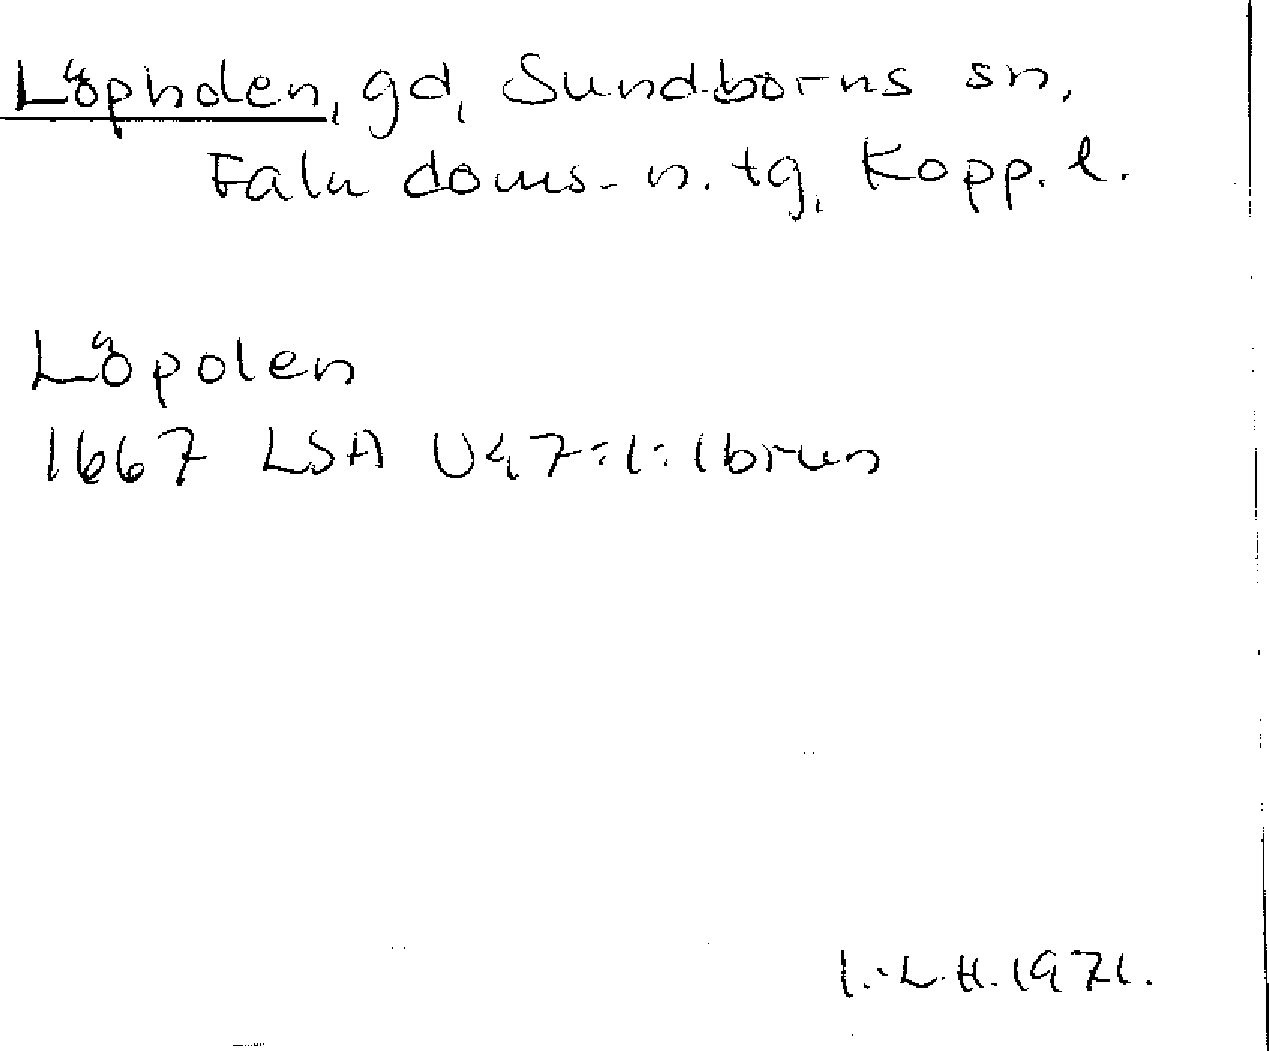 Löpholen, gd, Sundborns sn,
Falu doms. n. tg, Kopp. l.
Löpolen
1667 LSA U47:1:1brun
I.-L.H.1971.